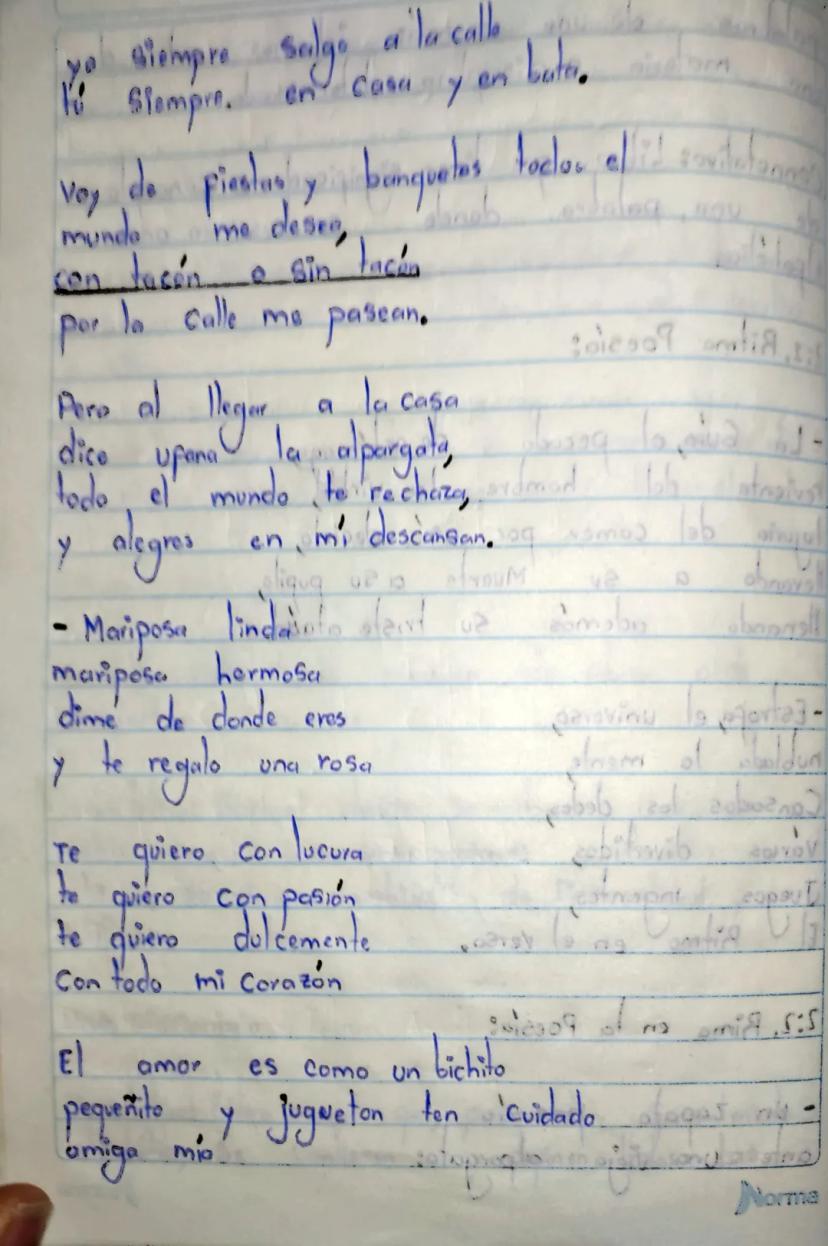 yo siempre salgo a la calle
tú siempre. en casa y en bata.
Voy de fiestas y banquetes todos el
mundo me desea,
con tacón o sin tacón
por la calle me pasean.
Pero al llegar a la casa
dice ufana la alpargata,
todo el mundo te rechaza,
y alegres en mí descansan.
- Mariposa linda
mariposa hermosa
dime de donde eres
y te regalo una rosa
Te quiero con locura
te quiero con pasión
te quiero dulcemente
Con todo mi corazón
El amor es como un bichito
pequeñito y jugueton ten cuidado
amiga mía
Norma